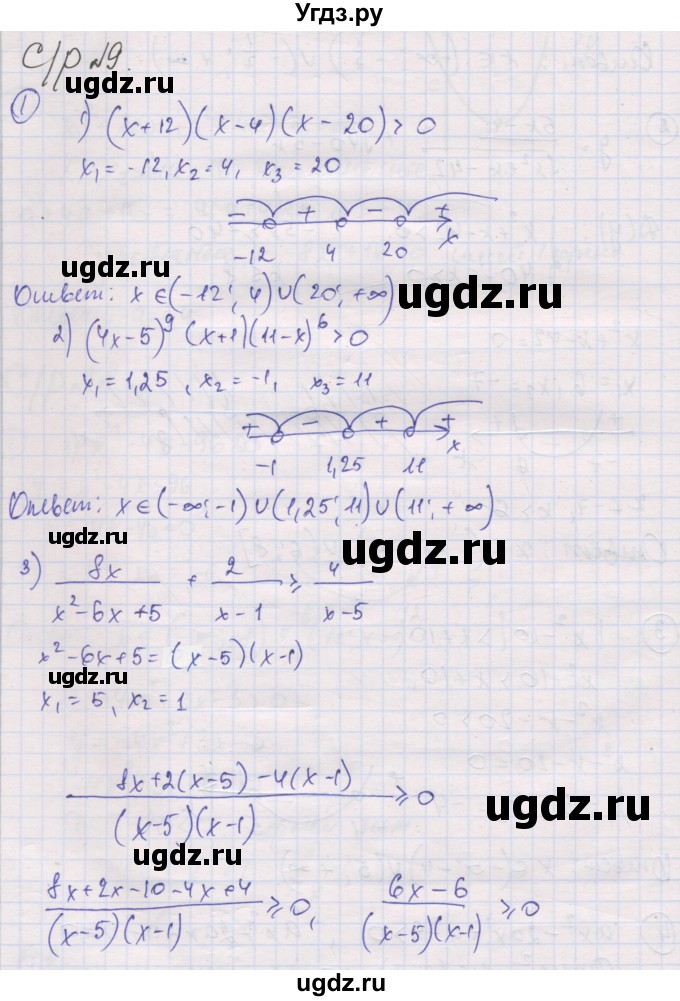 Угдз.ру
С/р №9.
ugdz.ru
① 1) (x+12)(x-4)(x-20)>0
x₁=-12, x₂=4, x₃=20
ugdz.ru
- + - +
-12 4 20 x
ugdz.ru
Ответ: x∈(-12; 4)∪(20; +∞)
2) (4x-5)⁹ (x+1)(11-x)⁶>0
ugdz.ru
x₁=1,25, x₂=-1, x₃=11
+ - + +
-1 1,25 11 x
ugdz.ru
Ответ: x∈(-∞;-1)∪(1,25;11)∪(11;+∞)
ugdz.ru
3) 8x/(x²-6x+5) + 2/(x-1) ≥ 4/(x-5)
x²-6x+5=(x-5)(x-1)
ugdz.ru
x₁=5, x₂=1
(8x+2(x-5)-4(x-1))/((x-5)(x-1)) ≥0
ugdz.ru
ugdz.ru
(8x+2x-10-4x+4)/((x-5)(x-1)) ≥0, (6x-6)/((x-5)(x-1)) ≥0
ugdz.ru
ugdz.ru